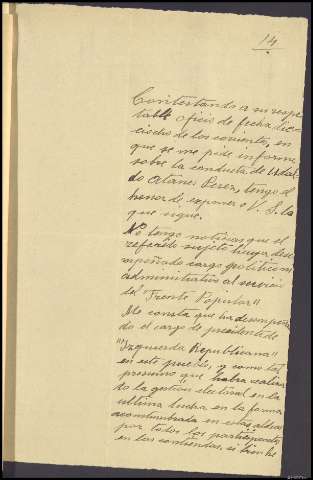 14
Contestando a su respe
table oficio de fecha diez
iocho de los corrientes, en
que se me pide informe
sobre la conducta de
do Perez, tengo el
honor de exponer a V. S. lo
que sigue.
No tengo noticias que el
referido sujeto haya dese
mpeñado cargo politico ni
administrativo al servicio
del "Frente Popular"
Me consta que ha desempeña
do el cargo de presidente de
"Izquierda Republicana"
en este pueblo, y como tal
presumo que habra realiza
do la gestion electoral en la
ultima lucha en la forma
acostumbrada en estas aldeas
por todos los participantes
en las contiendas, si bien he